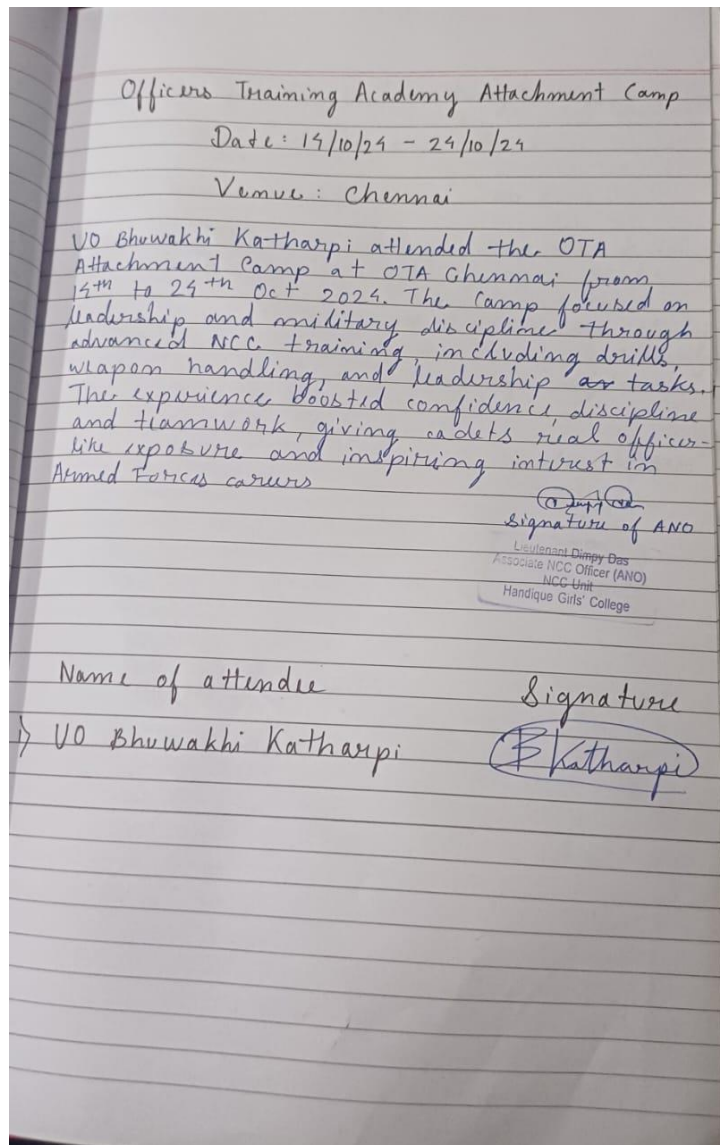 Officers Training Academy Attachment Camp
Date: 14/10/24 - 24/10/24
Venue: Chennai
UO Bhuwakhi Katharpi attended the OTA
Attachment Camp at OTA Chennai from
14th to 24th Oct 2024. The Camp focused on
leadership and military discipline through
advanced NCC training, including drills,
weapon handling, and leadership tasks.
The experience boosted confidence, discipline
and teamwork, giving cadets real officer-
like exposure and inspiring interest in
Armed Forces careers
Signature of ANO
Lieutenant Dimpy Das
Associate NCC Officer (ANO)
NCC Unit
Handique Girls' College
Name of attendee Signature
1) UO Bhuwakhi Katharpi B Katharpi